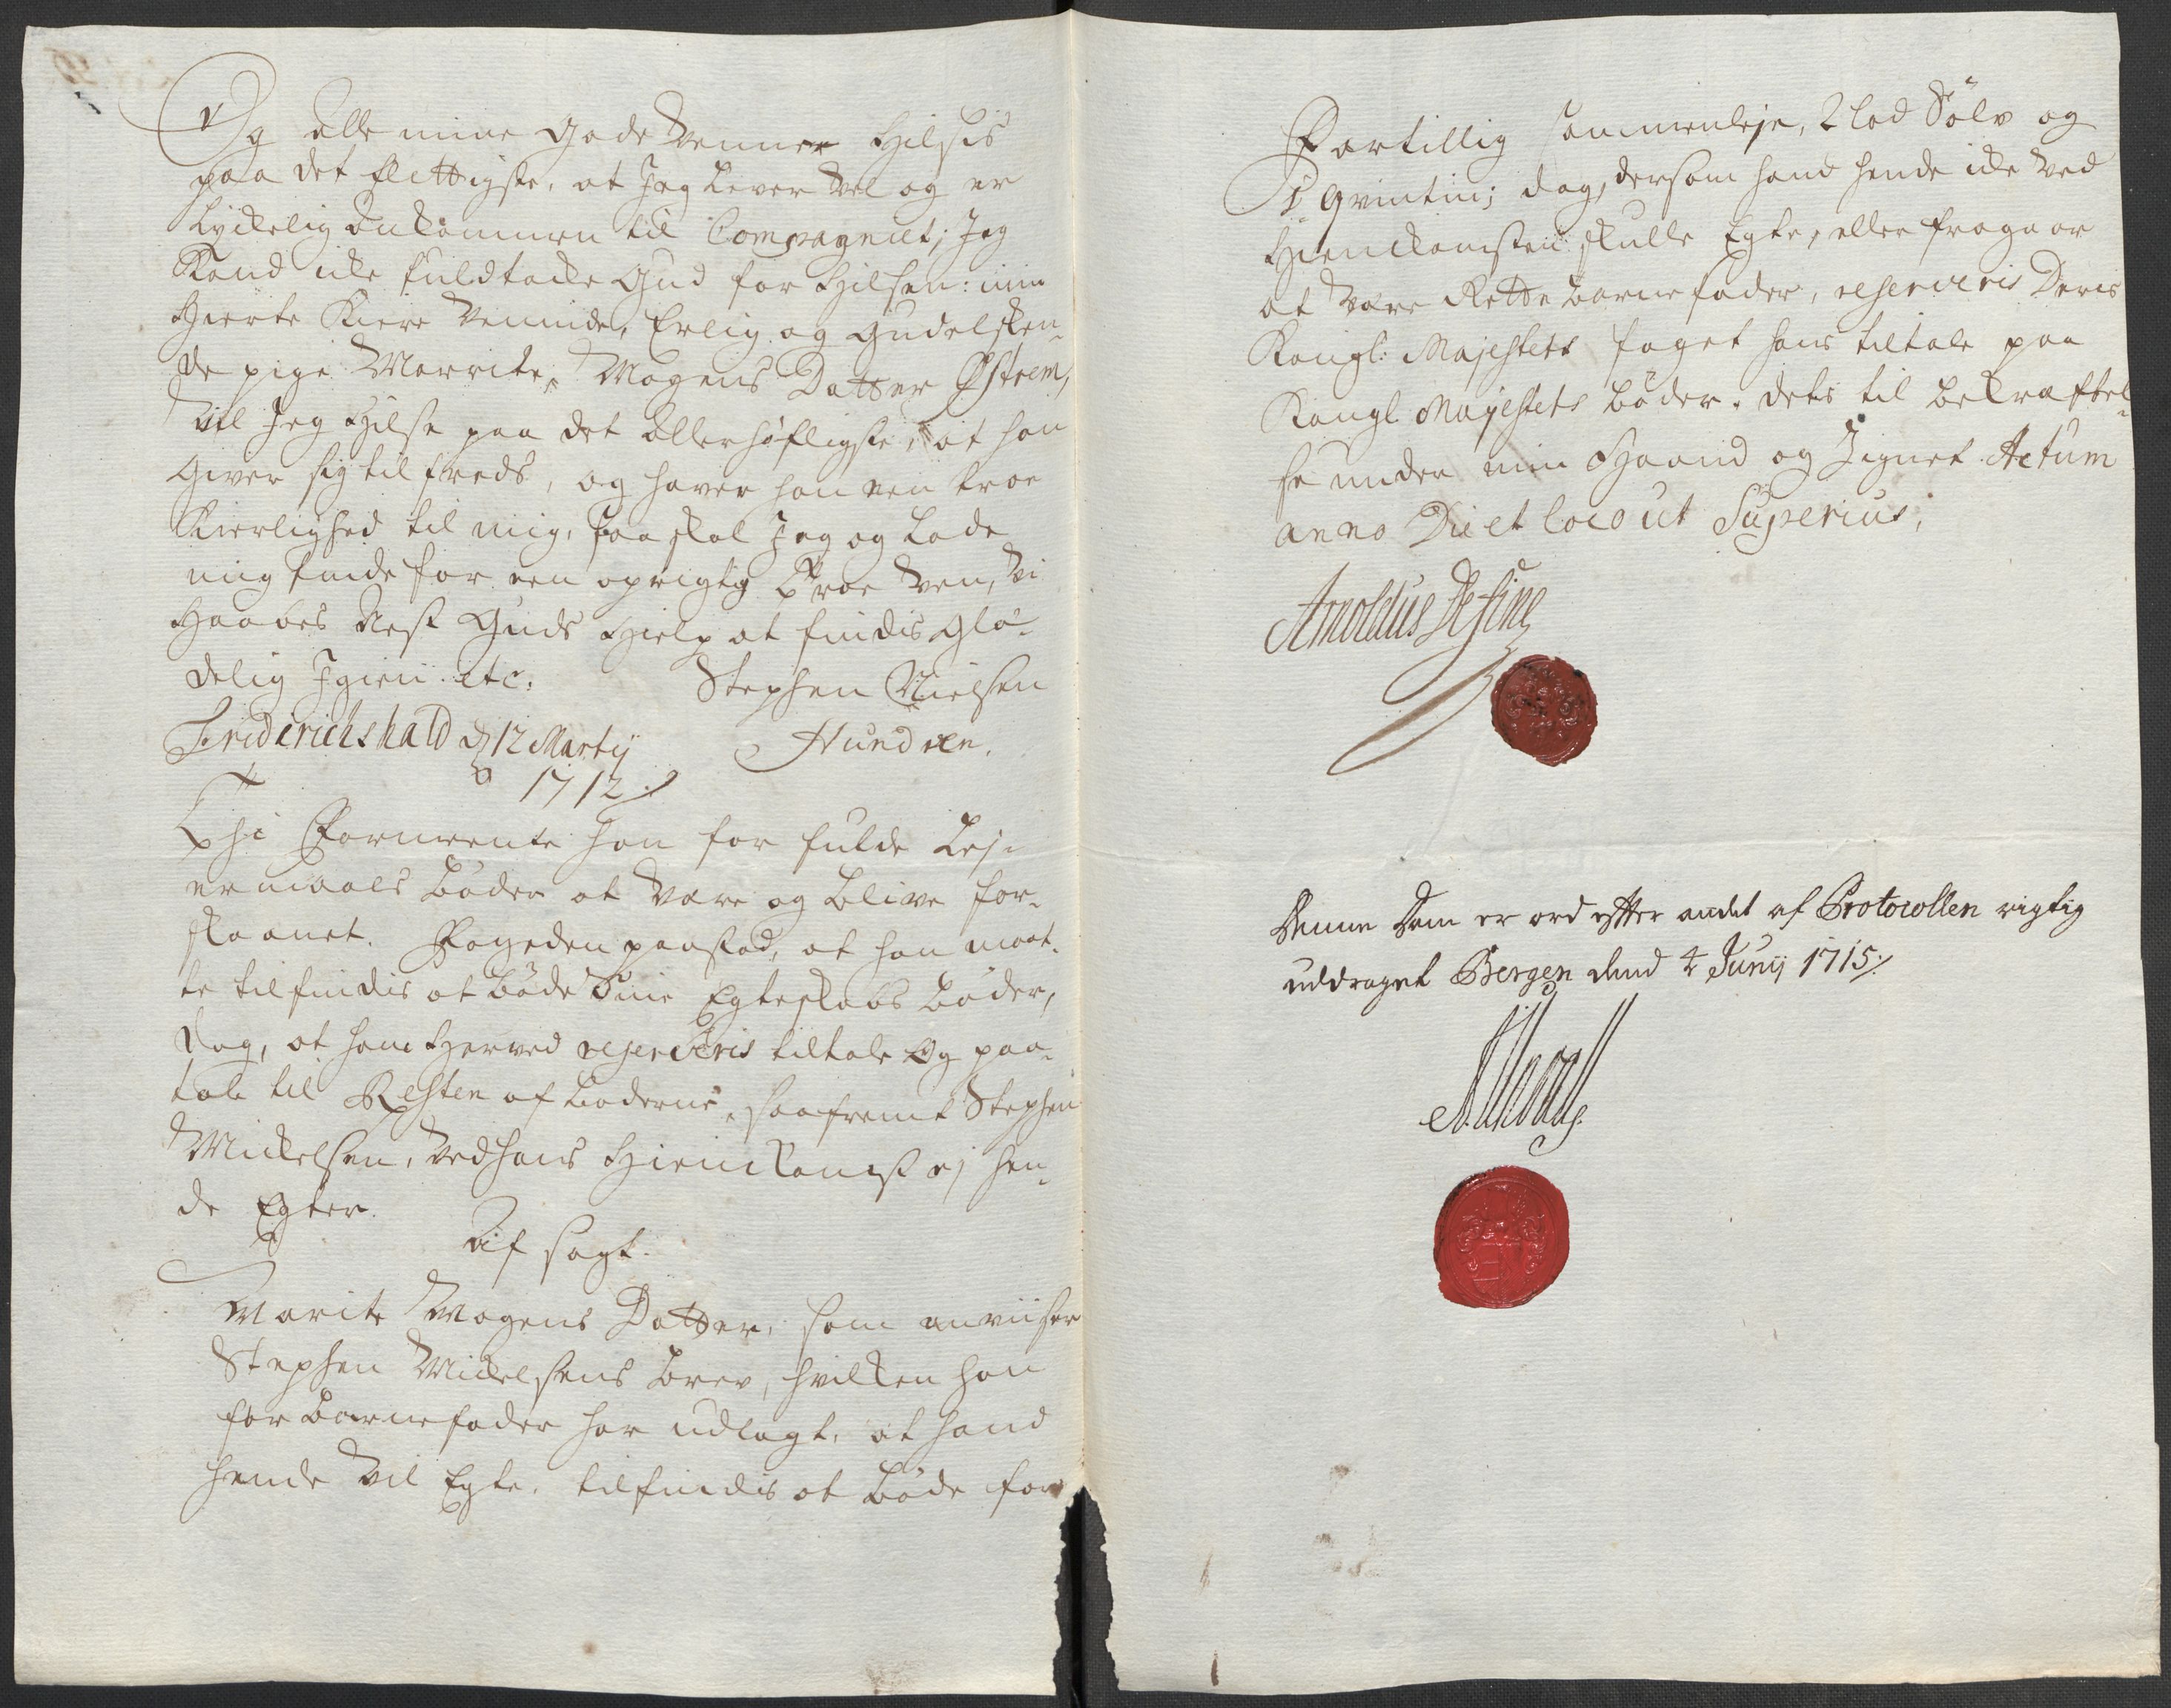 Og alle mine gode Venner Hilsis
paa det flittigste, at Jeg Lever Vel og er
Lyckelig ankommen til Compagniet; Jeg
Kand icke fuldtacke Gud for Hilsen: min
Hierte Kiere Veninde, Erlig og Gudelsken-
de pige Marrite Mogens Datter Østrem,
Vil Jeg Hilse paa det allerhøfligste, at hon
Giver sig til freds, og haver hon een troe
Kierlighed til mig, saa skal Jeg og Lade
mig finde for een oprigtig troe Ven, Vi
Haabes Nest Guds Hielp at findis Glæ-
delig Igien. etc. Stephen Nielsen
Friderichshald d 12 Martij
1712
Thi Formeente hon for fulde Lej-
ermaals bøder at Være og blive for-
skaanet. Fogeden paastod, at hon maat-
te tilfindis at bøde Sine Egteskabs bøder,
dog, at ham Herved reserveris tiltale og paa-
tale til Resten af bøderne, saafremt Stephen
Mickelsen, Ved hans Hiemkomst ej hen-
de Egter.
Af sagt.
Marite Mogens Datter, som anviiser
Stephen Mickelsens brev, hvilken hon
for barnefader har udlagt, at hand
hende Vil Egte, tilfindis at bøde for
Fortillig Sammenleje, 2 lod Sølv og
1 Qvintin; dog, dersom hand hende icke Ved
Hiemkomsten skulle Egte, eller fragaar
at Være Rette barnefader, reserveris Deris
Kongl: Majestets foget hans tiltale paa
Kongl Majestets bøder. dets til bekræftel-
se under min Haand og Zignet Actum
anno Die et loco ut Superius;
Arnoldus De fine
Denne Dom er ord efter andet af Protocollen rigtig
uddraget Bergen dend 4 Junij 1715